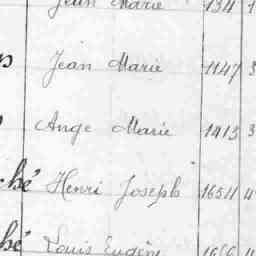 Jean Marie 1311
Jean Marie 1147 3
Ange Marie 1413 3
ché Henri Joseph 16511 4
hé Louis Eugène